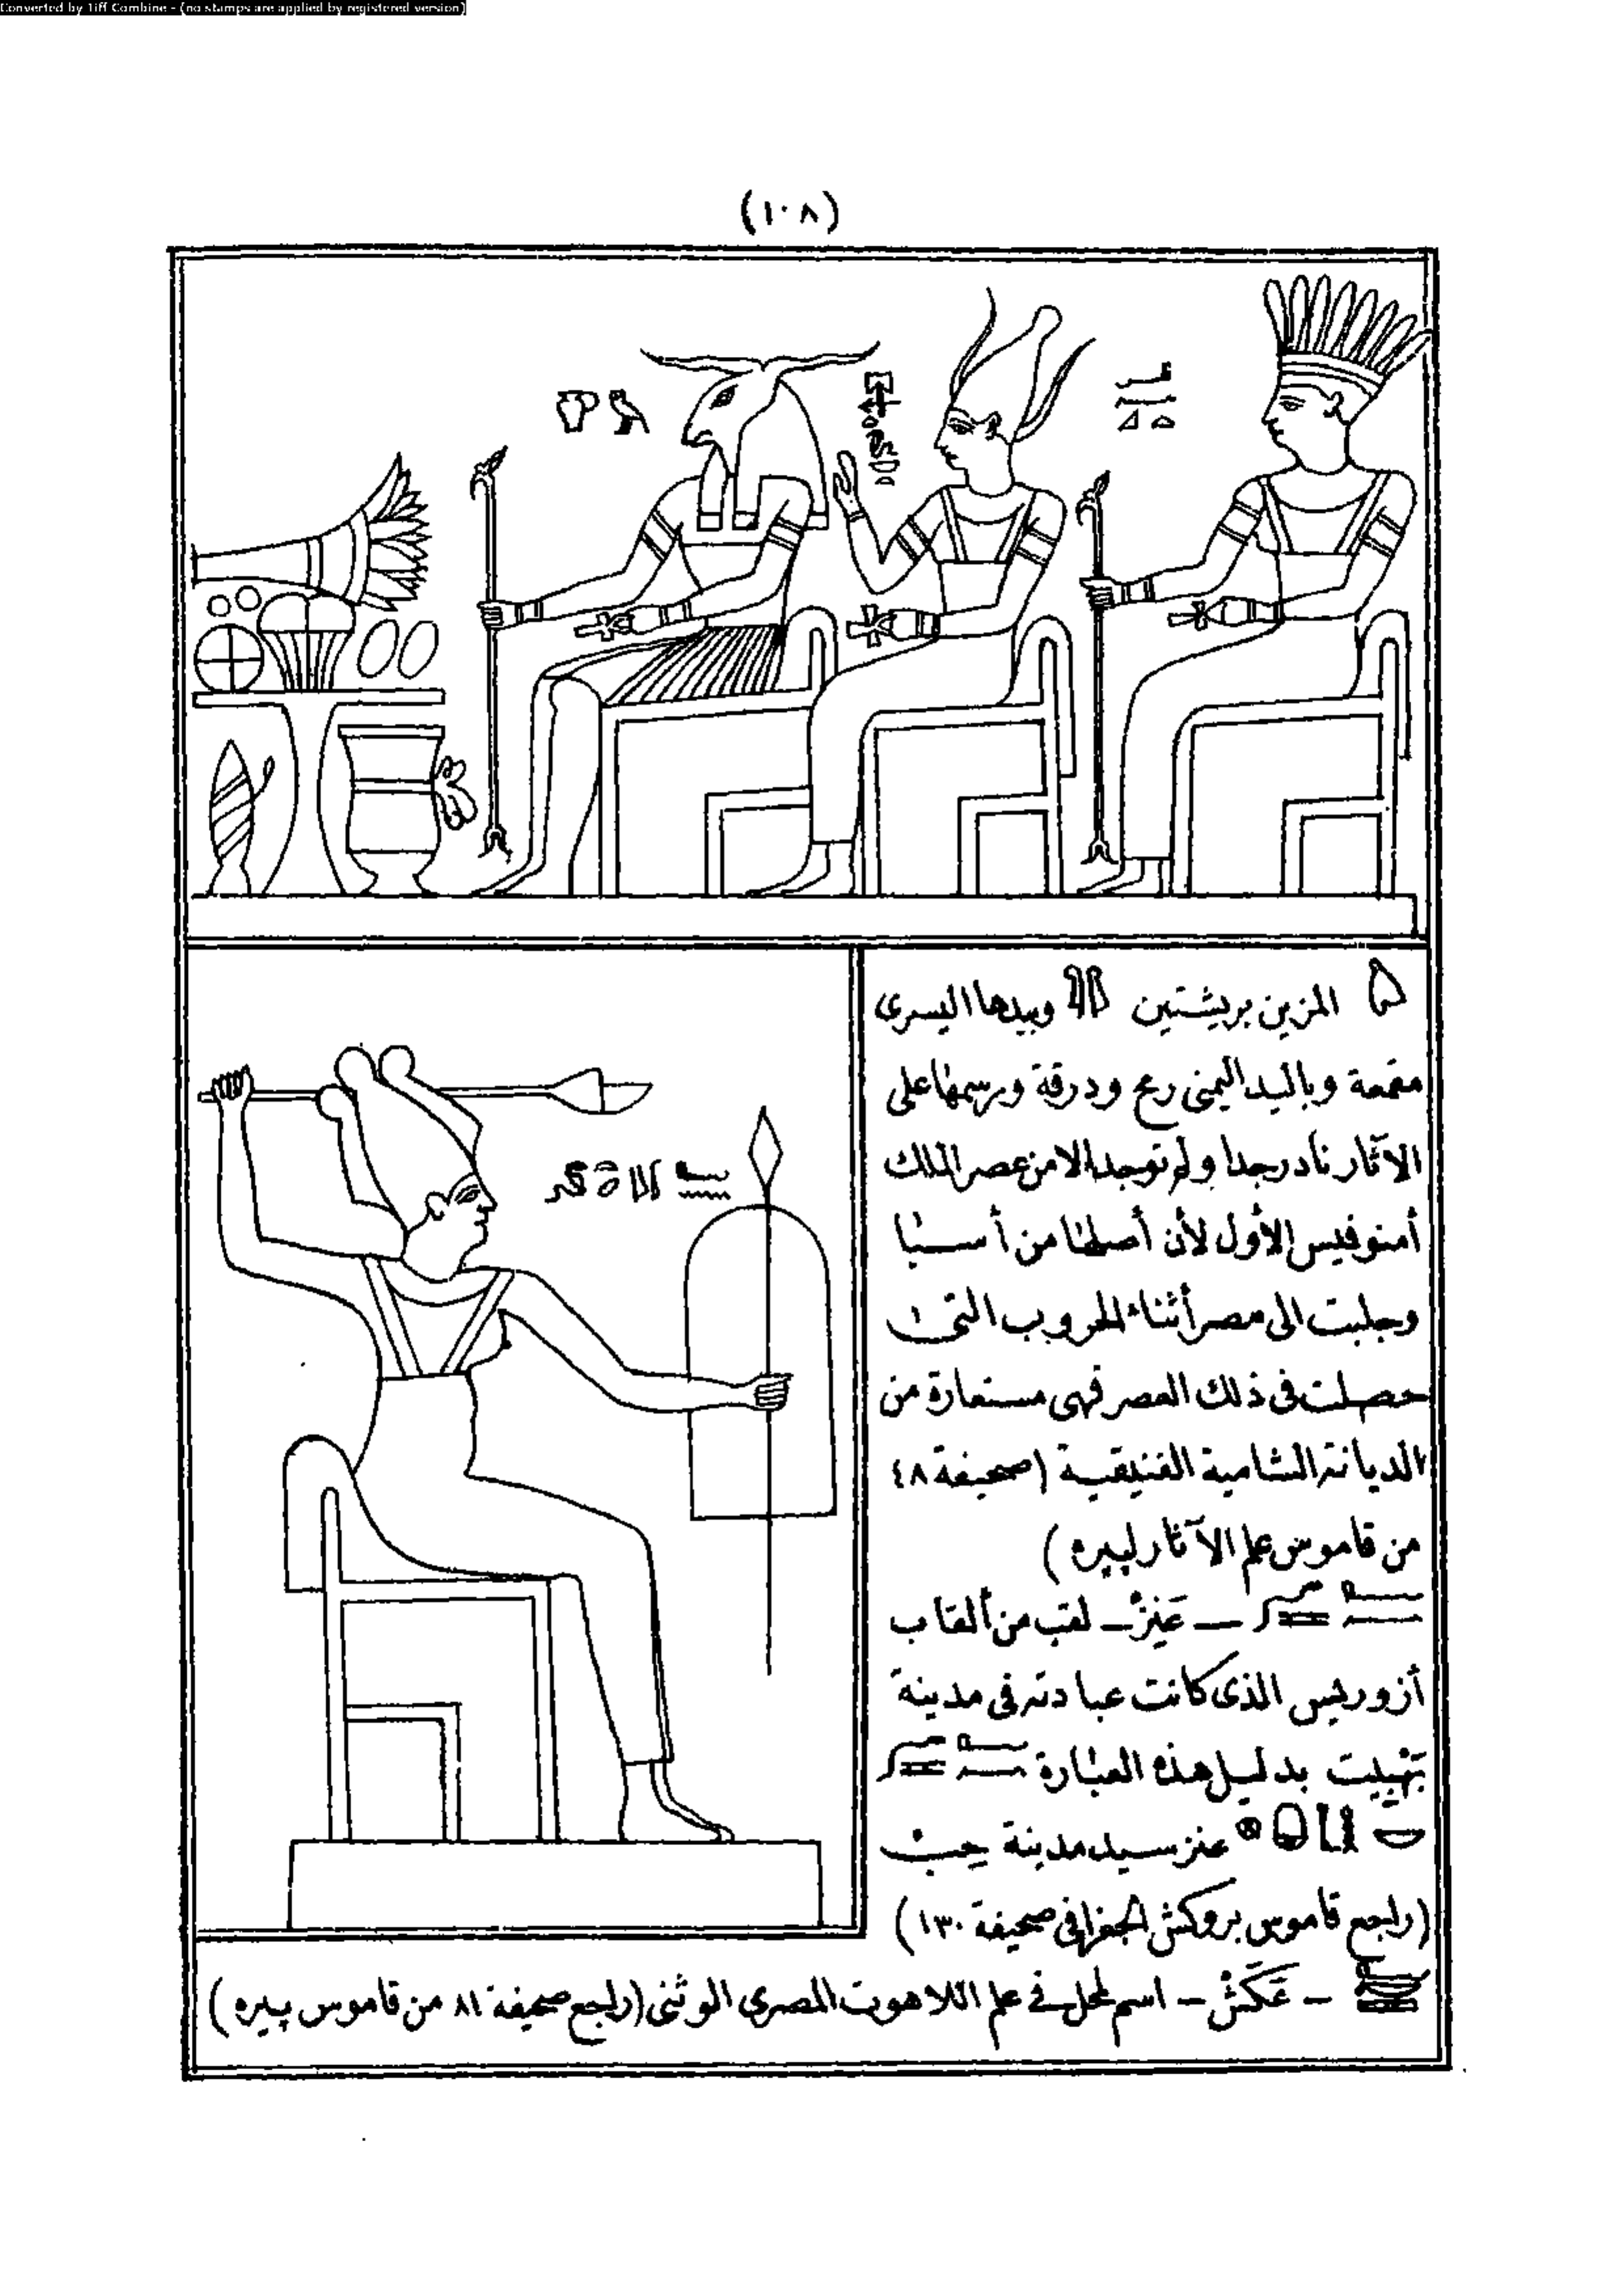 Converted by Tiff Combine - (no stamps are applied by registered version)
(١٠٨)
المزين بريشتين وبيدها اليسرى
مقمعة وباليد اليمنى رمح ودرقة ورسمها على
الآثار نادر جدا ولم توجد الا من عصر الملك
أمنوفيس الأول لأن أصلها من أسيا
وجلبت الى مصر أثناء الحروب التى
حصلت فى ذلك العصر فهى مستعارة من
الديانة الشامية الفنيقية (صحيفة ٤٨
من قاموس علم الآثار لپيره)
— عَنِزْ — لقب من ألقاب
أزوريس الذى كانت عبادته فى مدينة
بدليل هذه العبارة
عنز سيد مدينة حب
(راجع قاموس بروكش الجغرافى صحيفة ١٣٠)
— عَكَشْ — اسم لمحل فى علم اللاهوت المصرى الوثنى (راجع صحيفة ٨١ من قاموس پيره)